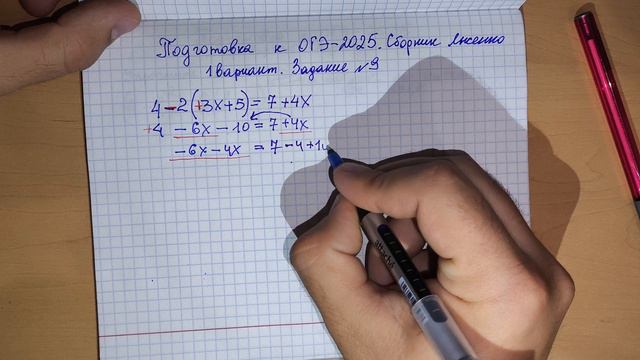 Подготовка к ОГЭ-2025. Сборник Лысенко
1 вариант. Задание №9
4-2(+3x+5)=7+4x
+4 -6x-10=7+4x
-6x-4x=7-4+1